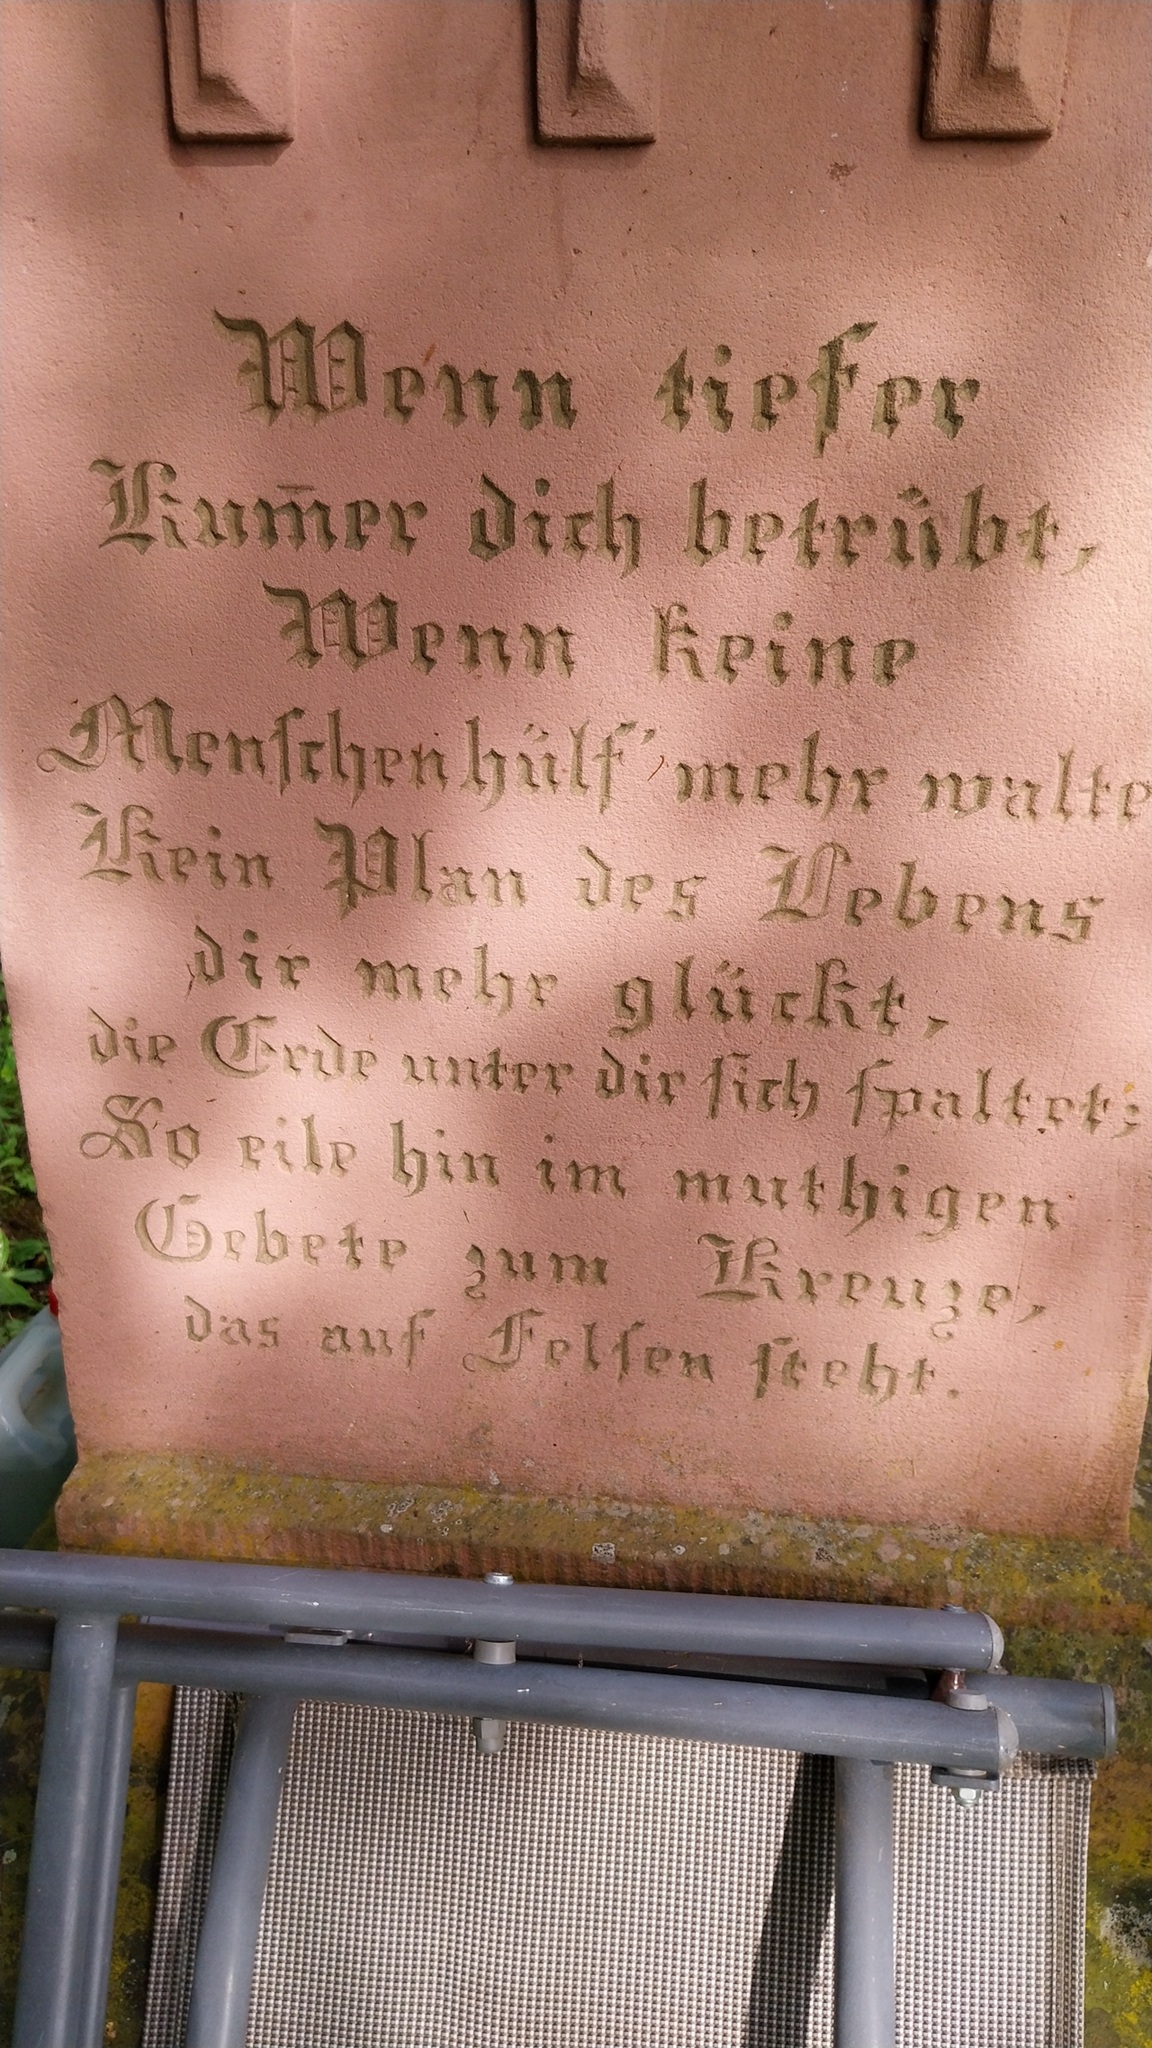 Wenn tiefer
Kum̄er dich betrübt,
Wenn keine
Menschenhülf' mehr walte
Kein Plan des Lebens
dir mehr glückt,
die Erde unter dir sich spaltet;
So eile hin im muthigen
Gebete zum Kreuze,
das auf Felsen steht.